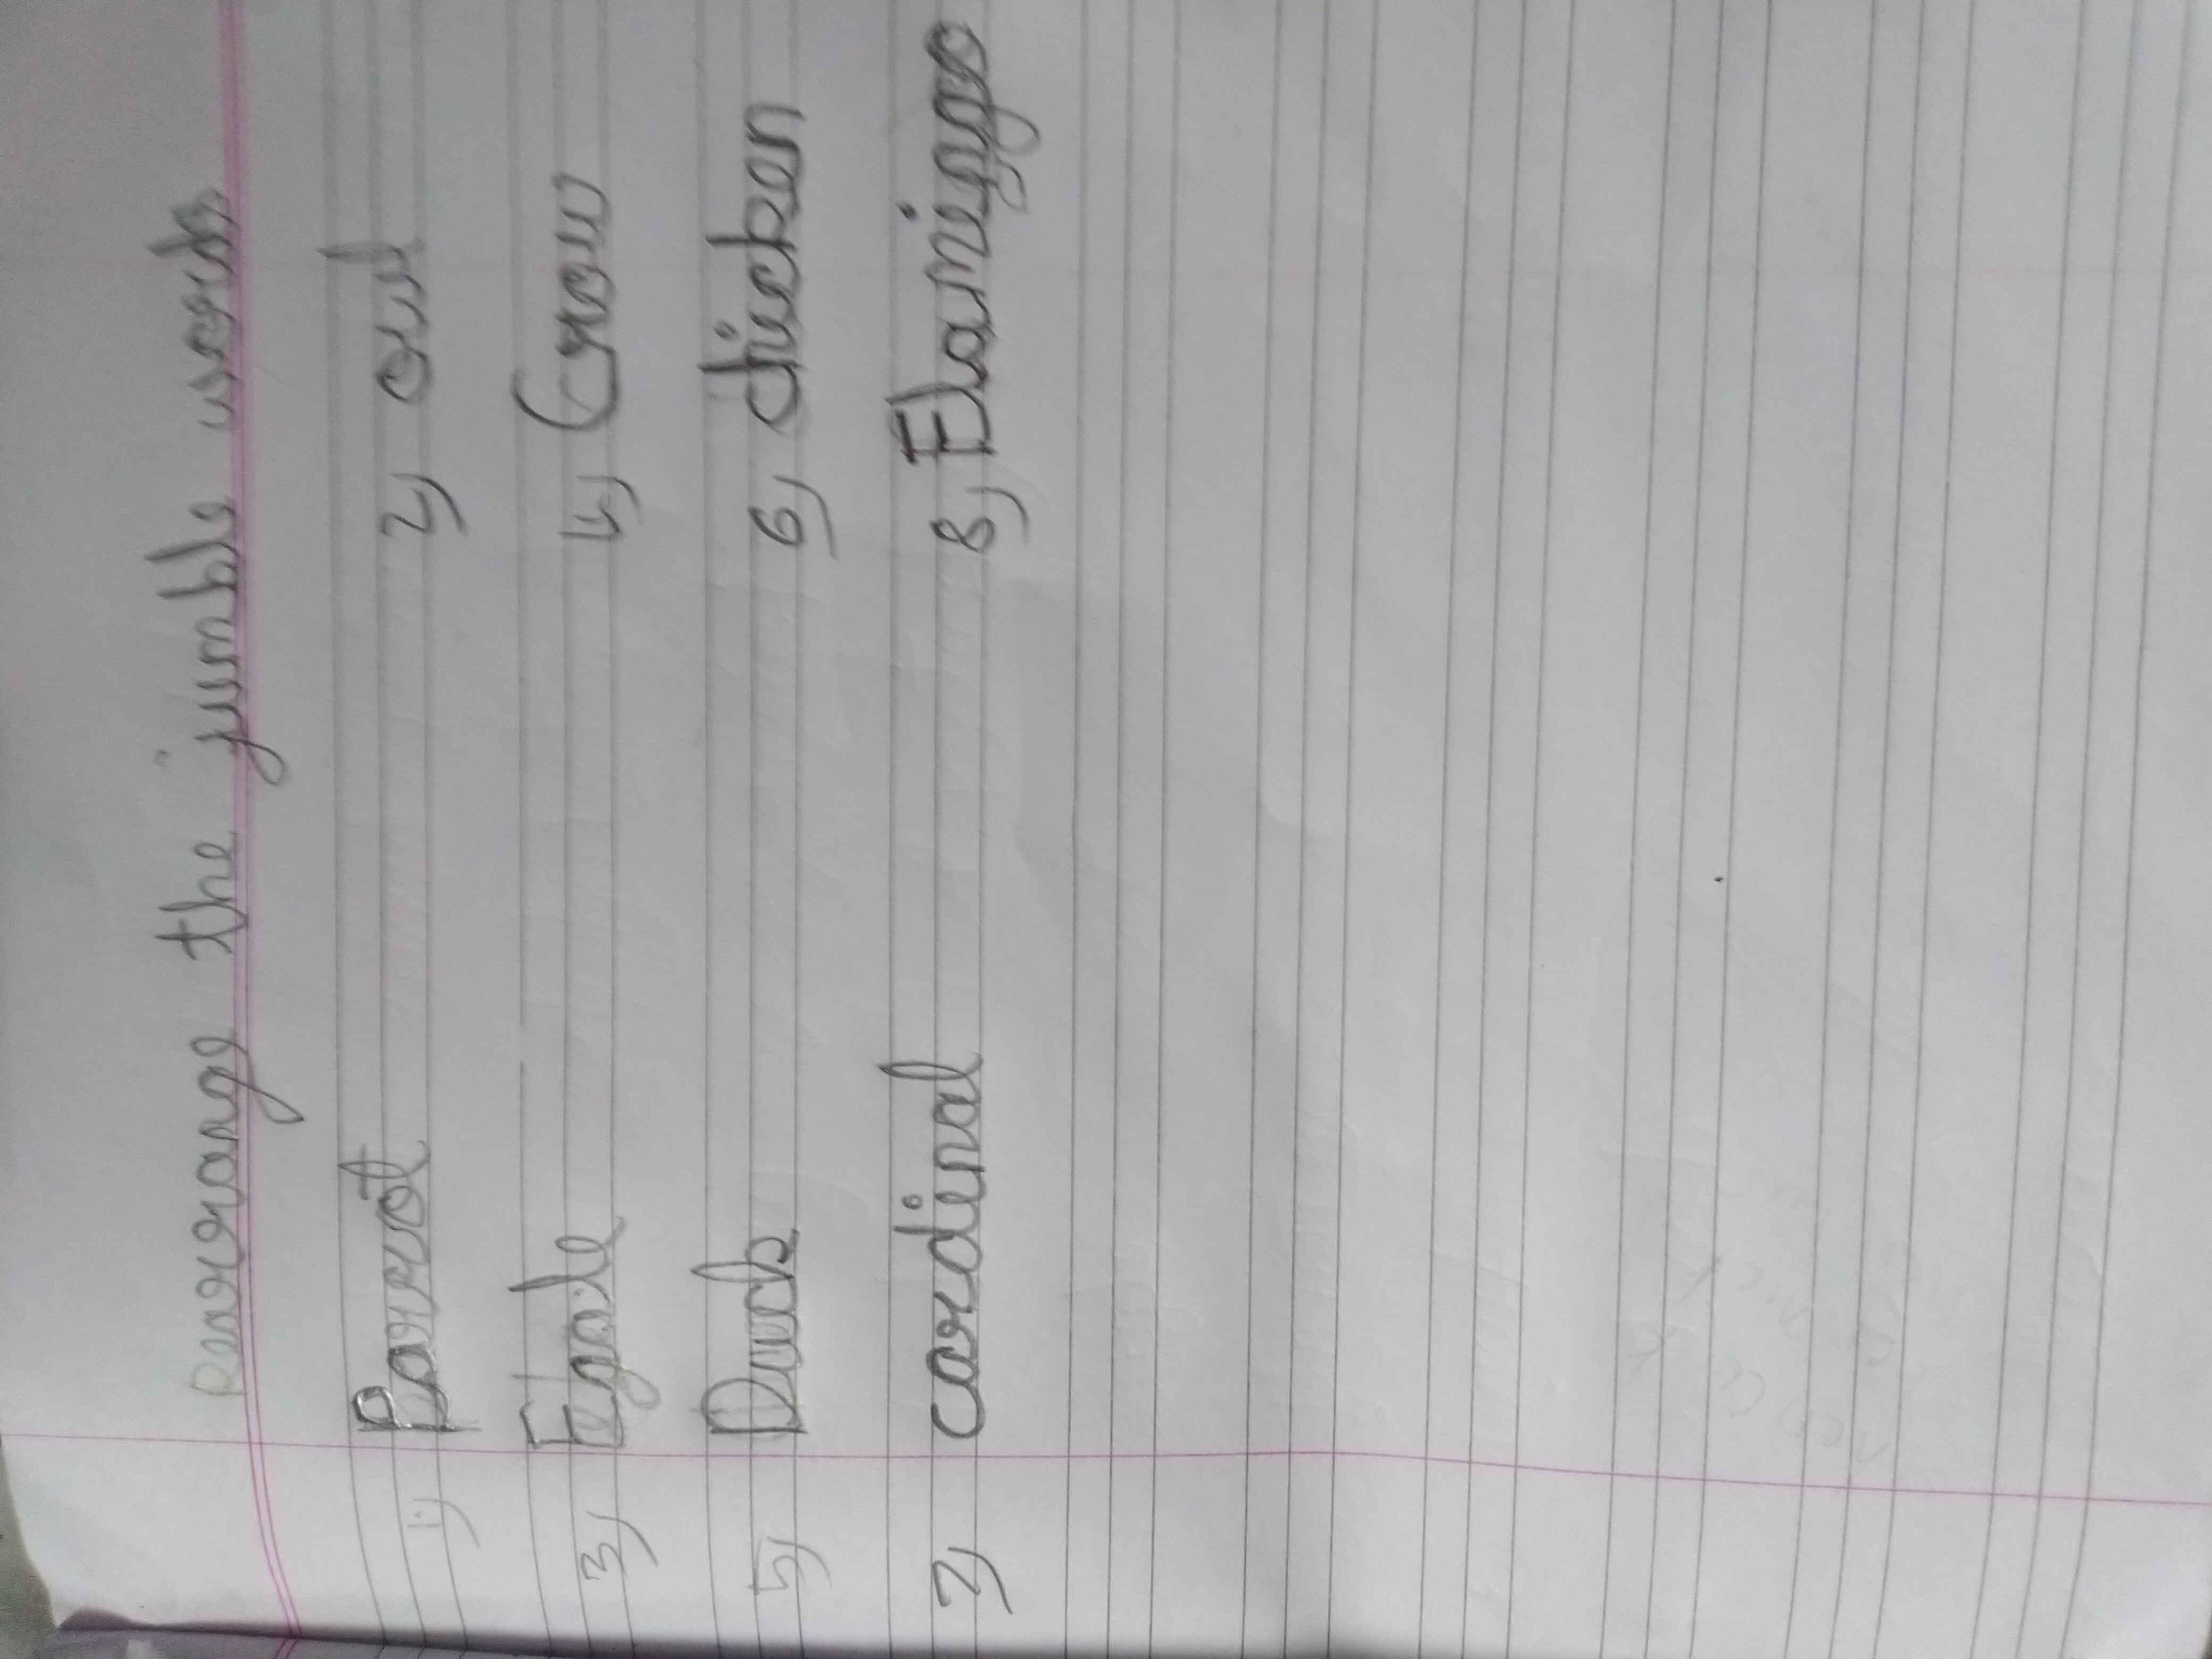 Rearrange the jumble words
1) Parrot 2) owl
3) Egale 4) Crow
5) Duck 6) chicken
7) cardinal 8) Flamingo